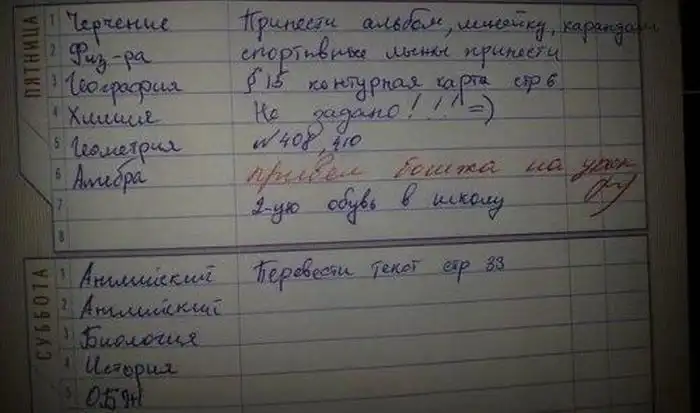 ПЯТНИЦА
1 Черчение Принести альбом, линейку, карандаш
2 Физ-ра спортивные лыжи принести
3 География § 15 контурная карта стр 6
4 Химия Не задано! !!! =)
5 Геометрия №408, 410
6 Алгебра привел бомжа на урок
7 2-ую обувь в школу
8
СУББОТА
1 Английский Перевести текст стр 33
2 Английский
3 Биология
4 История
5 ОБЖ